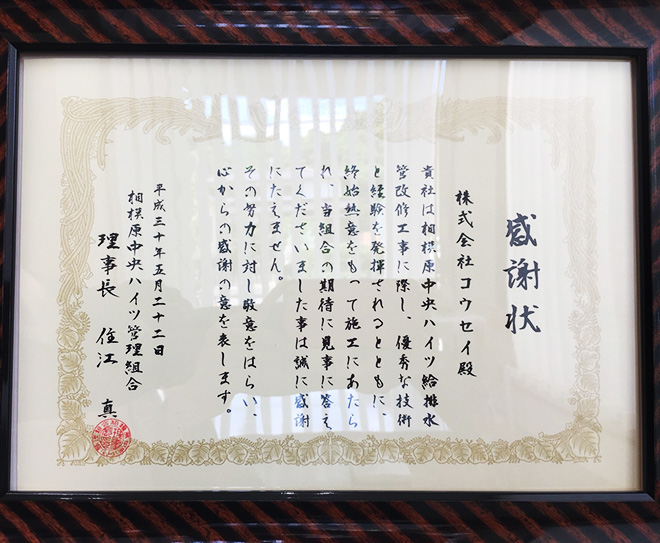 感謝状
株式会社コウセイ殿
貴社は相模原中央ハイツ給排水
管改修工事に際し、優秀な技術
と経験を発揮されるとともに、
終始熱意をもって施工にあたら
れ、当組合の期待に見事に答え
てくださいました事は誠に感謝
にたえません。
その努力に対し敬意をはらい、
心からの感謝の意を表します。
平成三十年五月二十二日
相模原中央ハイツ管理組合
理事長 住江 真